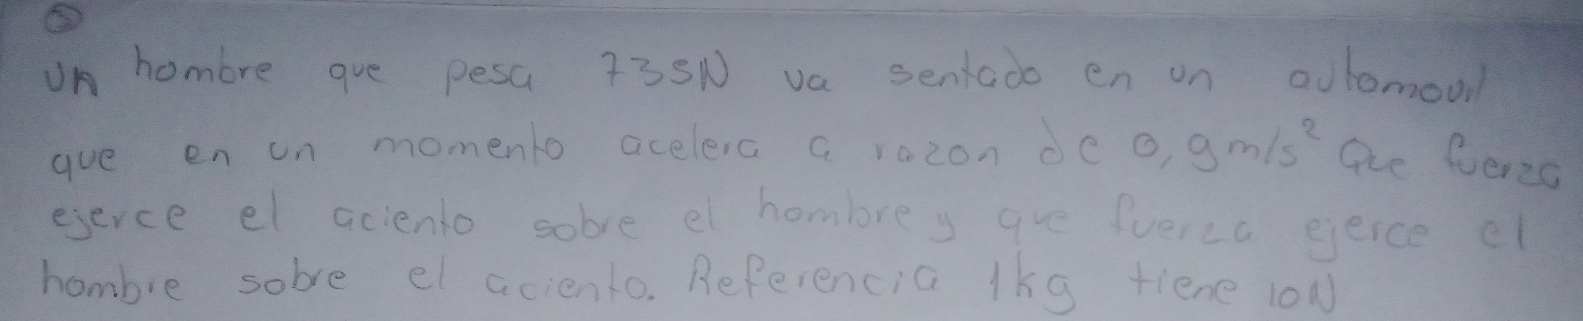 Un hombre que pesa 735N va sentado en un automovil
que en un momento acelera a razon de 0,9m/s² Que fuerza
ejerce el aciento sobre el hombre y que fuerza ejerce el
hombre sobre el aciento. Referencia 1kg tiene 10N